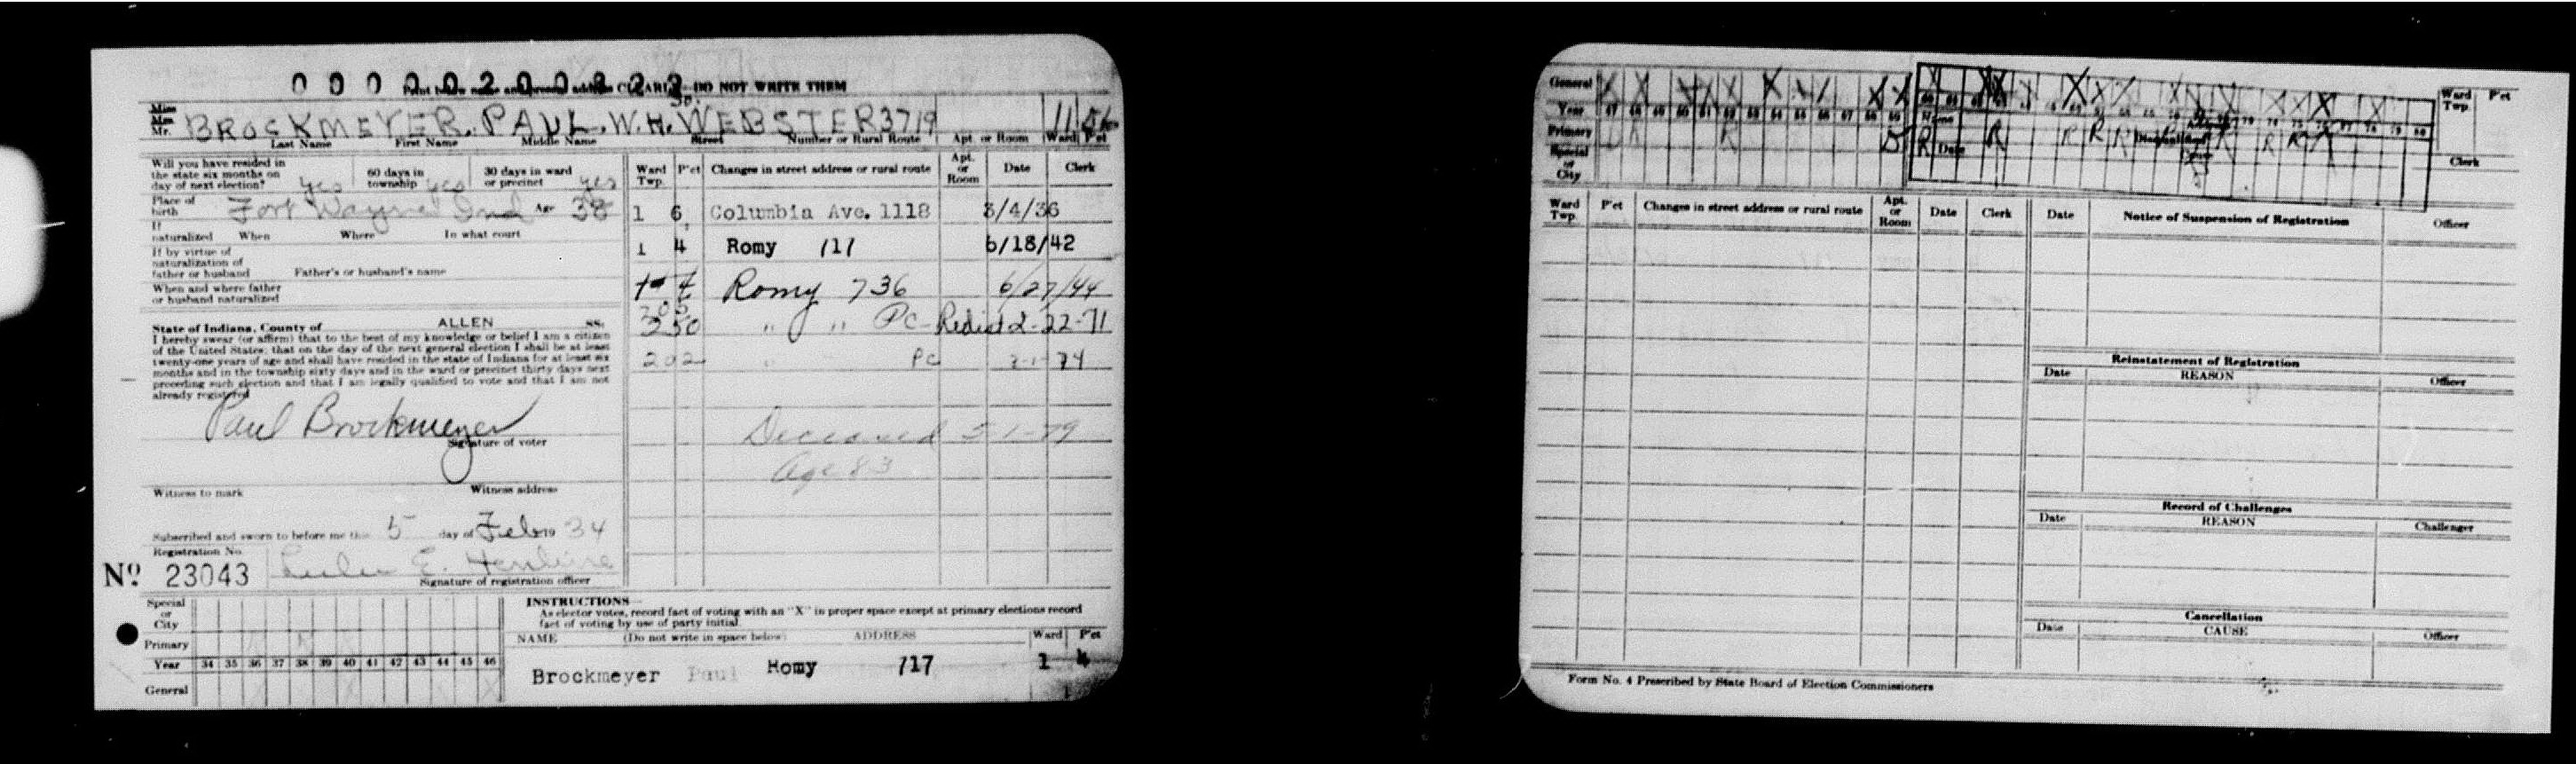 0000200823
Print below name and present address CLEARLY—DO NOT WRITE THEM
Miss
Mrs.
Mr. BROCKMEYER, PAUL, W.H. So. WEBSTER 3719 11
Last Name First Name Middle Name Street Number or Rural Route Apt. or Room Ward P'ct
Will you have resided in the state six months on day of next election? yes 60 days in township yes 30 days in ward or precinct yes
Place of birth Fort Wayne Ind Age 38
If naturalized When Where In what court
If by virtue of naturalization of father or husband Father's or husband's name
When and where father or husband naturalized
State of Indiana, County of ALLEN ss.
I hereby swear (or affirm) that to the best of my knowledge or belief I am a citizen
of the United States; that on the day of the next general election I shall be at least
twenty-one years of age and shall have resided in the state of Indiana for at least six
months and in the township sixty days and in the ward or precinct thirty days next
preceding such election and that I am legally qualified to vote and that I am not
already registered
Paul Brockmeyer
Signature of voter
Witness to mark Witness address
Subscribed and sworn to before me this 5 day of Feb 1934
Registration No.
No 23043
Signature of registration officer
Ward Twp. P'ct Changes in street address or rural route Apt. or Room Date Clerk
1 6 Columbia Ave. 1118 3/4/36
1 4 Romy 717 6/18/42
Romy 736 6/27/44
250 " " PC Redist 2-22-71
202 " PC 74
Deceased 5-1-79
Age 83
Special or City
Primary
Year 34 35 36 37 38 39 40 41 42 43 44 45 46
General
INSTRUCTIONS—
As elector votes, record fact of voting with an "X" in proper space except at primary elections record
fact of voting by use of party initial.
NAME (Do not write in space below) ADDRESS Ward P'ct
Brockmeyer Paul Romy 717 1 4
General
Year 47 48 49 50 51 52 53 54 55 56 57 58 59
Primary
Special or City
Ward Twp. P'ct
Clerk
Ward Twp. P'ct Changes in street address or rural route Apt. or Room Date Clerk
Date Notice of Suspension of Registration Officer
Reinstatement of Registration
Date REASON Officer
Record of Challenges
Date REASON Challenger
Cancellation
Date CAUSE Officer
Form No. 4 Prescribed by State Board of Election Commissioners